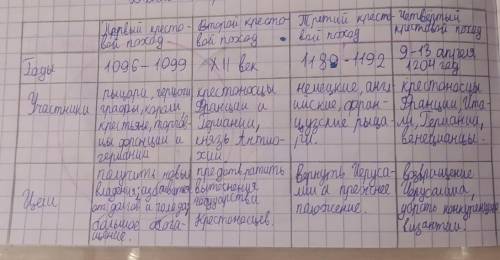 Первый кресто-
вой поход
Второй кресто-
вой поход
Третий кресто-
вый поход
Четвёртый
крестовой поход
Годы
1096-1099
XII век
1189-1192
9-13 апреля
1204 год
Участники
рыцари, герцоги,
графы, короли
крестьяне, торгов-
цы франции и
германии
крестоносцы
Франции и
Германии,
князь Антио-
хий
немецкие, англ-
ийские, фран-
цузские рыца-
ри.
крестоносцы
Франции, Ита-
ли, Германии,
венецианцы.
Цели
получить новые
владения,
от долгов и голода,
большое обога-
щение.
предотвратить
вытеснения
государства
крестоносцев.
вернуть Иеруса-
лим прежнее
положение.
возвращение
Иерусалима,
убрать конкуренцию
византии.